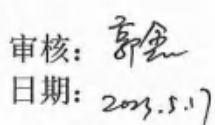 审核：郭
日期：2023.5.17